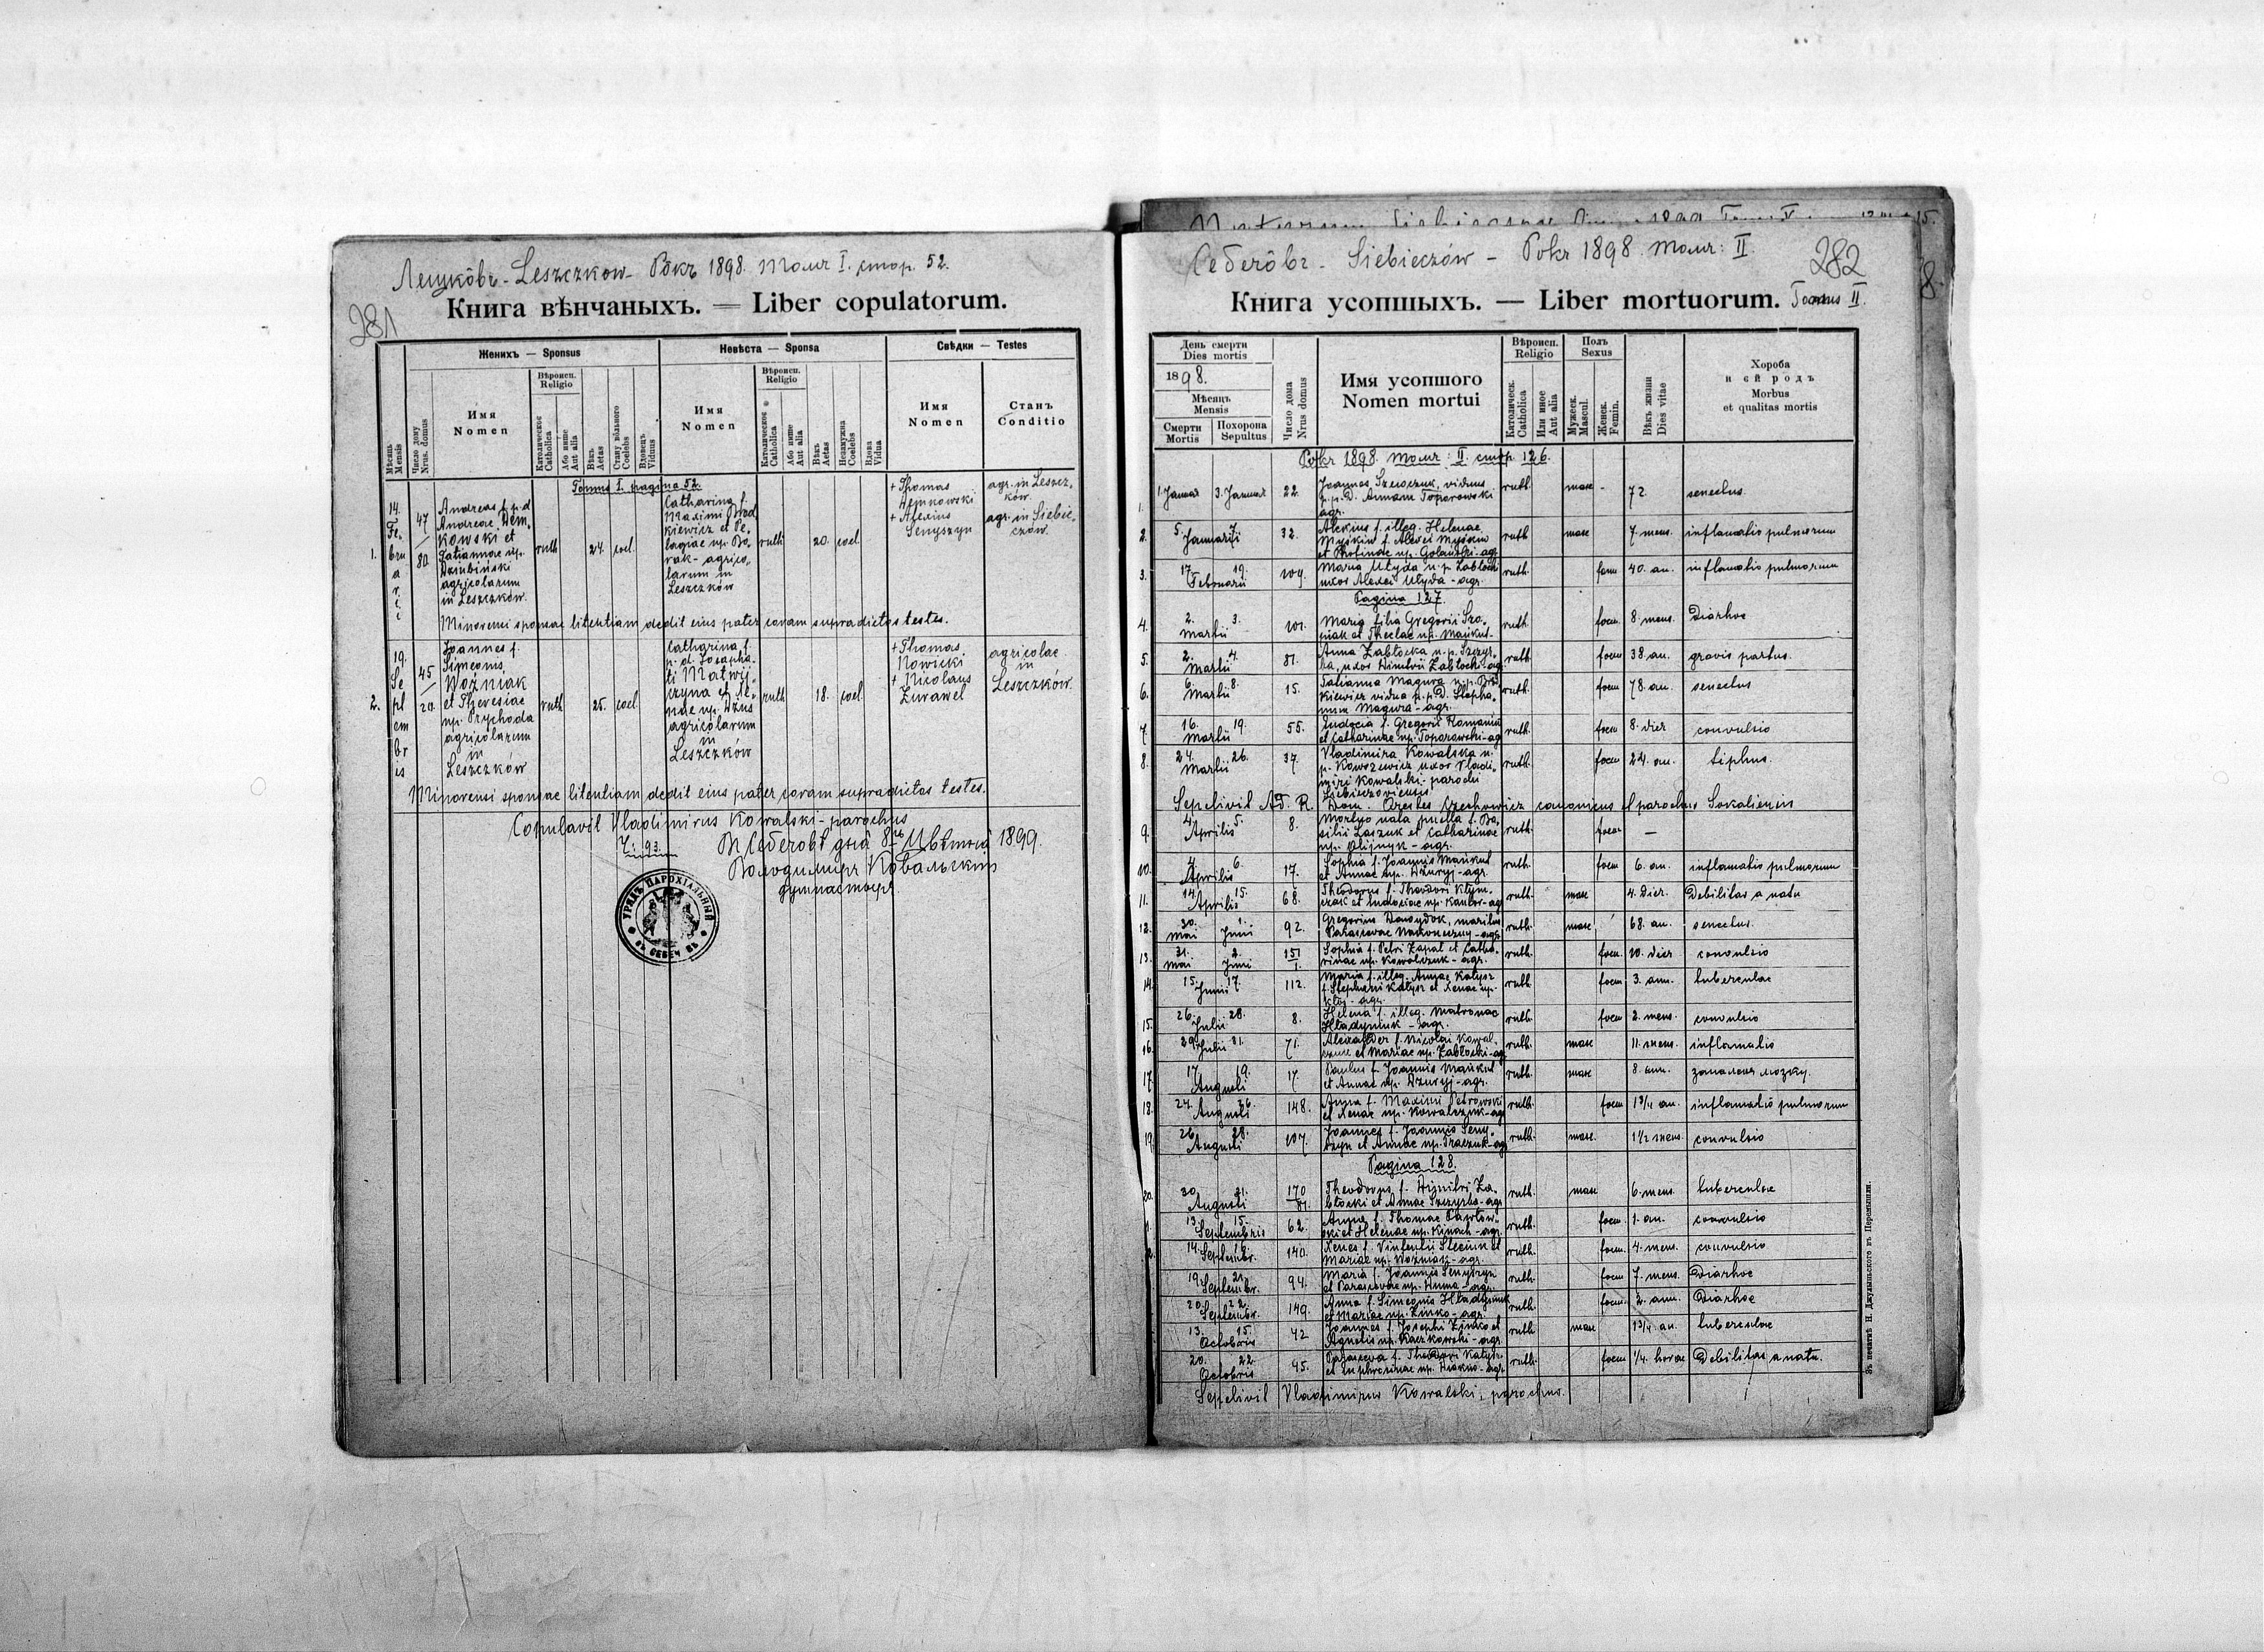 Лешкôвъ - Leszczkow - Рôкъ 1898. Томъ I. стор. 52.
281
Книга вѣнчаныхъ. — Liber copulatorum.
Мѣсяцъ Mensis
Число дому Nrus. domus
Женихъ — Sponsus
Имя Nomen
Вѣроисп. Religio
Католическое Catholica
Або инше Aut alia
Вѣкъ Aetas
Стану вôльного Coelebs
Вдовецъ Viduus
Невѣста — Sponsa
Имя Nomen
Вѣроисп. Religio
Католическое Catholica
Або инше Aut alia
Вѣкъ Aetas
Незамужна Coelebs
Вдова Vidua
Свѣдки — Testes
Имя Nomen
Станъ Conditio
Tomus I. pagina 52.
1.
14. Februarii
47/80
Andreas f. p. d.
Andreae Dem-
kowski et
Tatiannae np.
Dziubiński
agricolarum
in Leszczków.
ruth
24.
coel
Catharina f.
Maximi Brod
kiewicz et Pe-
lagiae np. Bo-
rak - agrico-
larum in
Leszczków
ruth
20.
coel
+ Thomas
Demkowski
+ Alexius
Senyszyn
agr. in Leszcz-
ków.
agr. in Siebie-
czów.
Minorensi sponsae licentiam dedit eius pater coram supradictos testes.
2.
19. Septembris
45/20
Joannes f.
Simeonis
Woźniak
et Theresiae
np. Prychoda
agricolarum
in
Leszczków
ruth
25.
coel
Catharina f.
p. d. Josapha-
ti Matwij-
czyna et Xe-
nae np. Dżus
agricolarum
in
Leszczków
ruth
18.
coel
+ Thomas
Nowicki
+ Nicolaus
Żurawel
agricolae
in
Leszczków.
Minorensi sponsae licentiam dedit eius pater coram supradictos testes.
Copulavit Vladimirus Kowalski - parochus
Ч: 93.
Въ Себечовѣ дня 8го Цвѣтня 1899.
Володимиръ Ковальскій
душпастырь
УРЯДЪ ПАРОХІАЛЬНЫЙ
ВЪ СЕБЕЧ ВѢ
Себечôвъ - Siebieczów - Рôкъ 1898. Томъ: II.
282
8.
Книга усопшыхъ. — Liber mortuorum. Tomus II.
День смерти Dies mortis
1898.
Мѣсяцъ Mensis
Смерти Mortis
Похорона Sepultus
Число дома Nrus domus
Имя усопшого Nomen mortui
Вѣроисп. Religio
Католическ. Catholica
Или иное Aut alia
Полъ Sexus
Мужеск. Mascul.
Женск. Femin.
Вѣкъ жизни Dies vitae
Хороба и єй родъ
Morbus et qualitas mortis
Рôкъ 1898. томъ: II. стор. 126.
1. 1. Januar 3. Januar 22. Joannes Szewczuk, viduus p. p. D. Annam Toporowski agr. ruth. masc - 72. senectus.
2. 5. Januarii 7. 32. Alexius f. illeg. Helenae Myśkiw f. Alexei Myśkiw et Parolinae np. Golański - agr ruth masc 7. mens. inflamatio pulmorum
3. 17. Februarii 19. 109. Maria Ulyda n. p. Zablocki uxor Alexei Ulyda - agr. ruth. foem 40. an. inflamatio pulmorum
Pagina 127.
4. 2. Martii 3. 101. Maria filia Gregorii Szo- niak et Theclae np. Maukut - ruth. foem. 8. mens. Diarhoe
5. 2. Martii 4. 81. Anna Zabłocka n. p. Szczyr- ba, uxor Dimitrii Zablocki - ag. ruth. foem 38. an. gravis partus.
6. 6. Martii 8. 15. Tatianna Magura n. p. Bro kiewicz vidua p. p. D. Stepha- num Magura - agr. ruth. foem 78. an. senectus
7. 16. Martii 19. 55. Eudocia f. Gregorii Romaniu et Catharinae np. Toporowski - ag ruth. foem 8. dier convulsio
8. 24. Martii 26. 37. Vladimira Kowalska n. p. Kowszewicz uxor Vladi- miri Kowalski - parochi Siebieczoviensis ruth. foem 24. an. tiphus.
Sepelivit Ad. R. Dom. Orestes Czechowicz canonicus et parochus Sokaliensis
9. 4. Aprilis 5. 8. Mortuo nata puella f. Ba- silii Laszuk et Catharinae np. Olijnyk - agr. ruth. foem —
10. 4. Aprilis 6. 17. Sophia f. Joannis Maukut et Annae np. Dzuryj - agr. ruth. foem 6. an. inflamatio pulmorum
11. 14. Aprilis 15. 68. Theodorus f. Theodori Klym- czak et Eudociae np. Kantor - ag ruth. masc 4. dier. Debilitas a natu
12. 30. Mai 1. Juni 92. Gregorius Dawydok, maritus Parascevae Nakoneczny - agr. ruth. masc 68. an. senectus.
13. 31. Mai 2. Juni 151/1. Sophia f. Petri Zapał et Catha- rinae np. Kowalczuk - agr. ruth. foem. 10. dier convulsio
14. 15. Junii 17. 112. Maria f. illeg. Annae Katysz f. Stephani Katysz et Xenae np. - agr. ruth. foem 3. ann. tuberculae
15. 26. Julii 28. 8. Helena f. illeg. Matronae Hładyniuk - agr. ruth. foem 2. mens. convulsio
16. 29. Julii 31. 71. Alexander f. Nicolai Kowal- czuk et Mariae np. Zabłocki - ag ruth. masc 11. mens. inflamatio
17. 17. Augusti 19. 17. Paulus f. Joannis Maukut et Annae np. Dzuryj - agr. ruth. masc 8. ann. запаленя мозку.
18. 24. Augusti 26. 148. Anna f. Maximi Petrowski et Xenae np. Kowalczuk - ag ruth. foem 1 3/4 an. inflamatio pulmorum
19. 26. Augusti 28. 107. Joannes f. Joannis Seny- szyn et Annae np. Traczuk - ag ruth. masc. 1 1/2 mens. convulsio
Pagina 128.
20. 30. Augusti 31. 170/81 Theodorus f. Dimitri Za- błocki et Annae Szczyrba - agr ruth. masc 6. mens. tuberculae
1. 13. Septembris 15. 62. Anna f. Thomae Pawłow- ski et Helenae np. Kinach - agr. ruth. foem. 1. an. convulsio
2. 14. Septembr. 16. 140. Xenes f. Vinfentii Steciuk et Mariae np. Woźniak - agr. ruth. foem. 4. mens. convulsio
19. Septembr. 21. 94. Maria f. Joannis Senyszyn et Parascevae np. Huma - agr. ruth. foem 7. mens. Diarhoe
20. Septembr. 22. 149. Anna f. Simeonis Hładyniuk et Mariae np. Zinko - agr. ruth. foem. 2. ann. Diarhoe
13. Octobris 15. 42 Joannes f. Josephi Zinko et Agnetis np. Kaczkowski - agr. ruth masc 1 3/4 an. tuberculae
20. Octobris 22. 45. Parasceva f. Theodori Katysz et Euphrosinae np. - agr. ruth. foem 1/4. horae Debilitas a natu.
Sepelivit Vladimirus Kowalski, parochus.
Зъ печатнѣ Н. Джулыньского въ Перемышли.